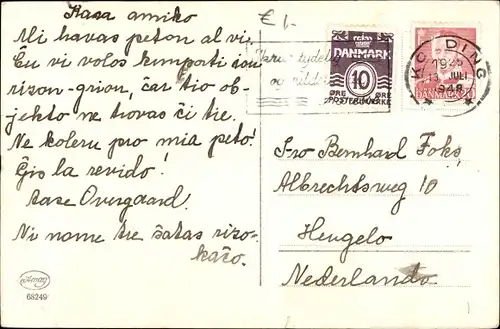 Kara amiko
Mi havas peton al vi.
Ĉu vi volos kunporti iom
rizon-grion, ĉar tio ob-
jekto ne trovas ĉi tie.
Ne koleru pro mia peto!
Ĝis la revido!
Aase Overgaard
Ni nome tre ŝatas rizo-
kaĉo.
€ 1-
Skriv tydeligt
og
DANMARK
10
ØRE ØRE
POSTFÆRGE
KOLDING
13 JULI
1948
DANMARK
Sro Bernhard Foks,
Albrechtsweg 10
Hengelo
Nederlando
Amag
68249